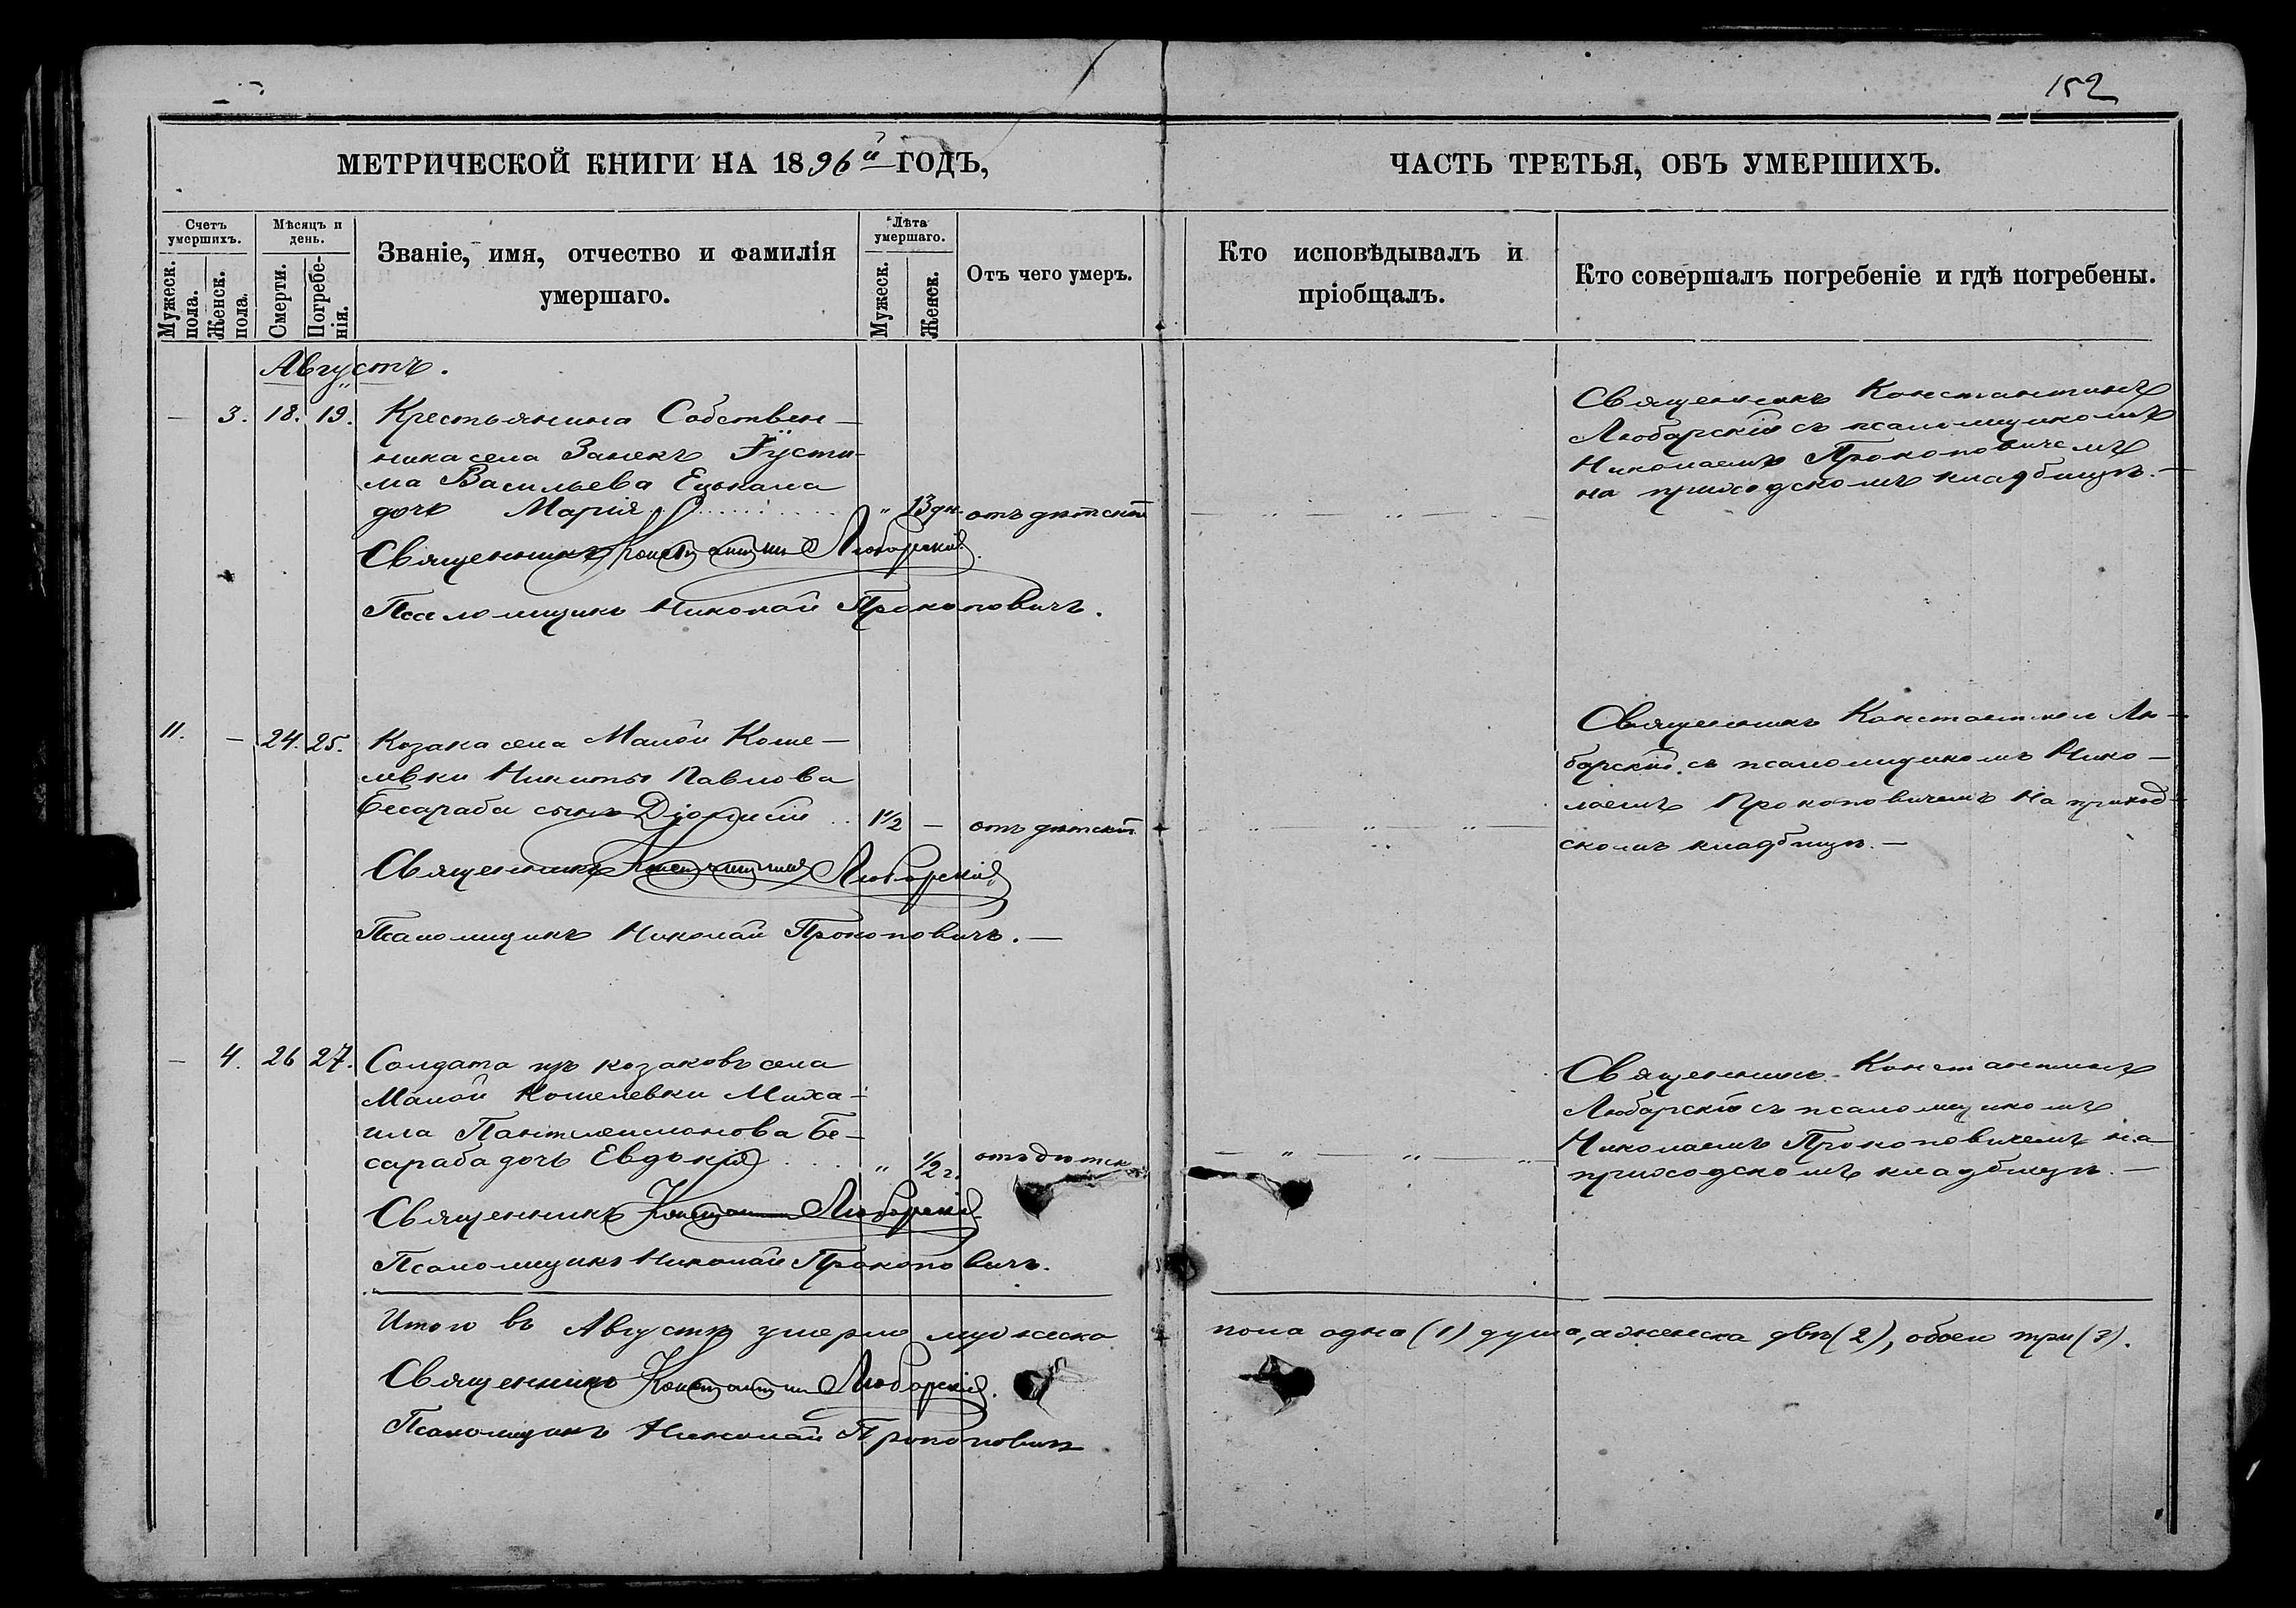 152
МЕТРИЧЕСКОЙ КНИГИ НА 1896й ГОДЪ,
ЧАСТЬ ТРЕТЬЯ, ОБЪ УМЕРШИХЪ.
Счетъ умершихъ.
Мужеск. пола.
Женск. пола.
Мѣсяцъ и день.
Смерти.
Погребенія.
Званіе, имя, отчество и фамилія
умершаго.
Лѣта умершаго.
Мужеск.
Женск.
Отъ чего умеръ.
Кто исповѣдывалъ и
пріобщалъ.
Кто совершалъ погребеніе и гдѣ погребены.
Августъ.
— 3. 18. 19. Крестьянина Собствен-
ника села Занекъ Іусти-
ма Васильева
дочь Марія „ 13 дн. отъ дѣтской
Священникъ Константинъ Любарскій
Псаломщикъ Николай Прокоповичъ.
Священникъ Константинъ
Любарскій съ псаломщикомъ
Николаемъ Прокоповичемъ
на приходскомъ кладбищѣ. —
11. — 24. 25. Козака села Малой Коше-
левки Никиты Павлова
Бесараба сынъ Діонисій 1½ — отъ дѣтской
Священникъ Константинъ Любарскій
Псаломщикъ Николай Прокоповичъ. —
Священникъ Константинъ Лю-
барскій съ псаломщикомъ Нико-
лаемъ Прокоповичемъ на приход-
скомъ кладбищѣ. —
— 4. 26 27. Солдата изъ козаковъ села
Малой Кошелевки Миха-
ила Пантелеимонова Бе-
сараба дочь Евдокія „ ½ г. отъ дѣтск
Священникъ Константинъ Любарскій
Псаломщикъ Николай Прокоповичъ.
Священникъ Константинъ
Любарскій съ псаломщикомъ
Николаемъ Прокоповичемъ на
приходскомъ кладбищѣ. —
Итого въ Августѣ умерло мужеска пола одна (1) душа, а женска двѣ (2), обоего три (3).
Священникъ Константинъ Любарскій.
Псаломщикъ Николай Прокоповичъ